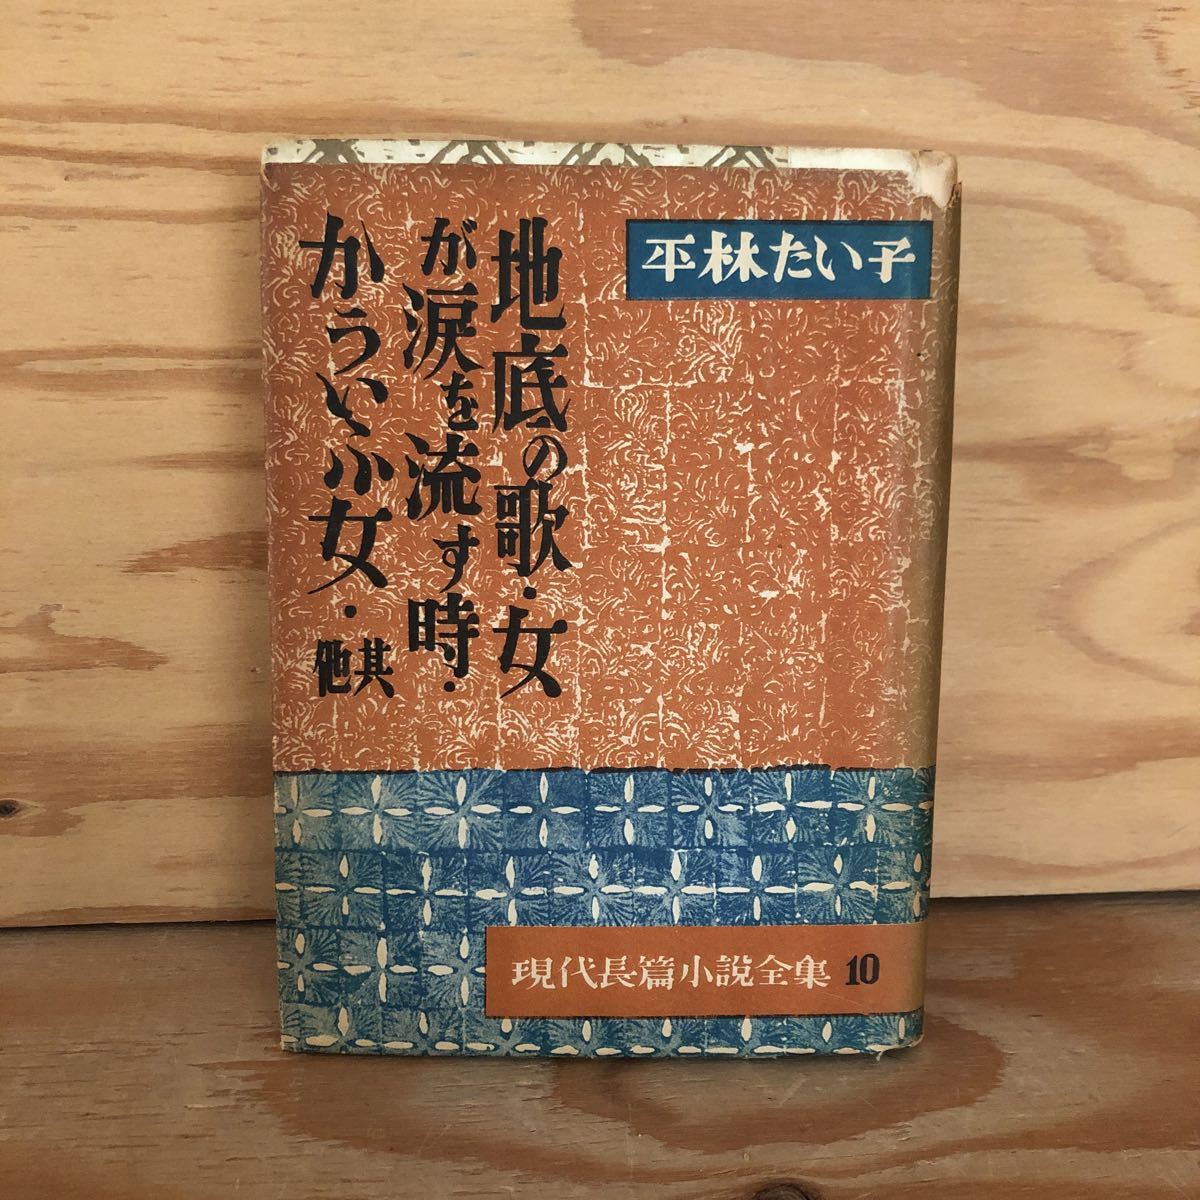 平林たい子
地底の歌・女
が涙を流す時・
かういふ女・其他
現代長篇小説全集 10